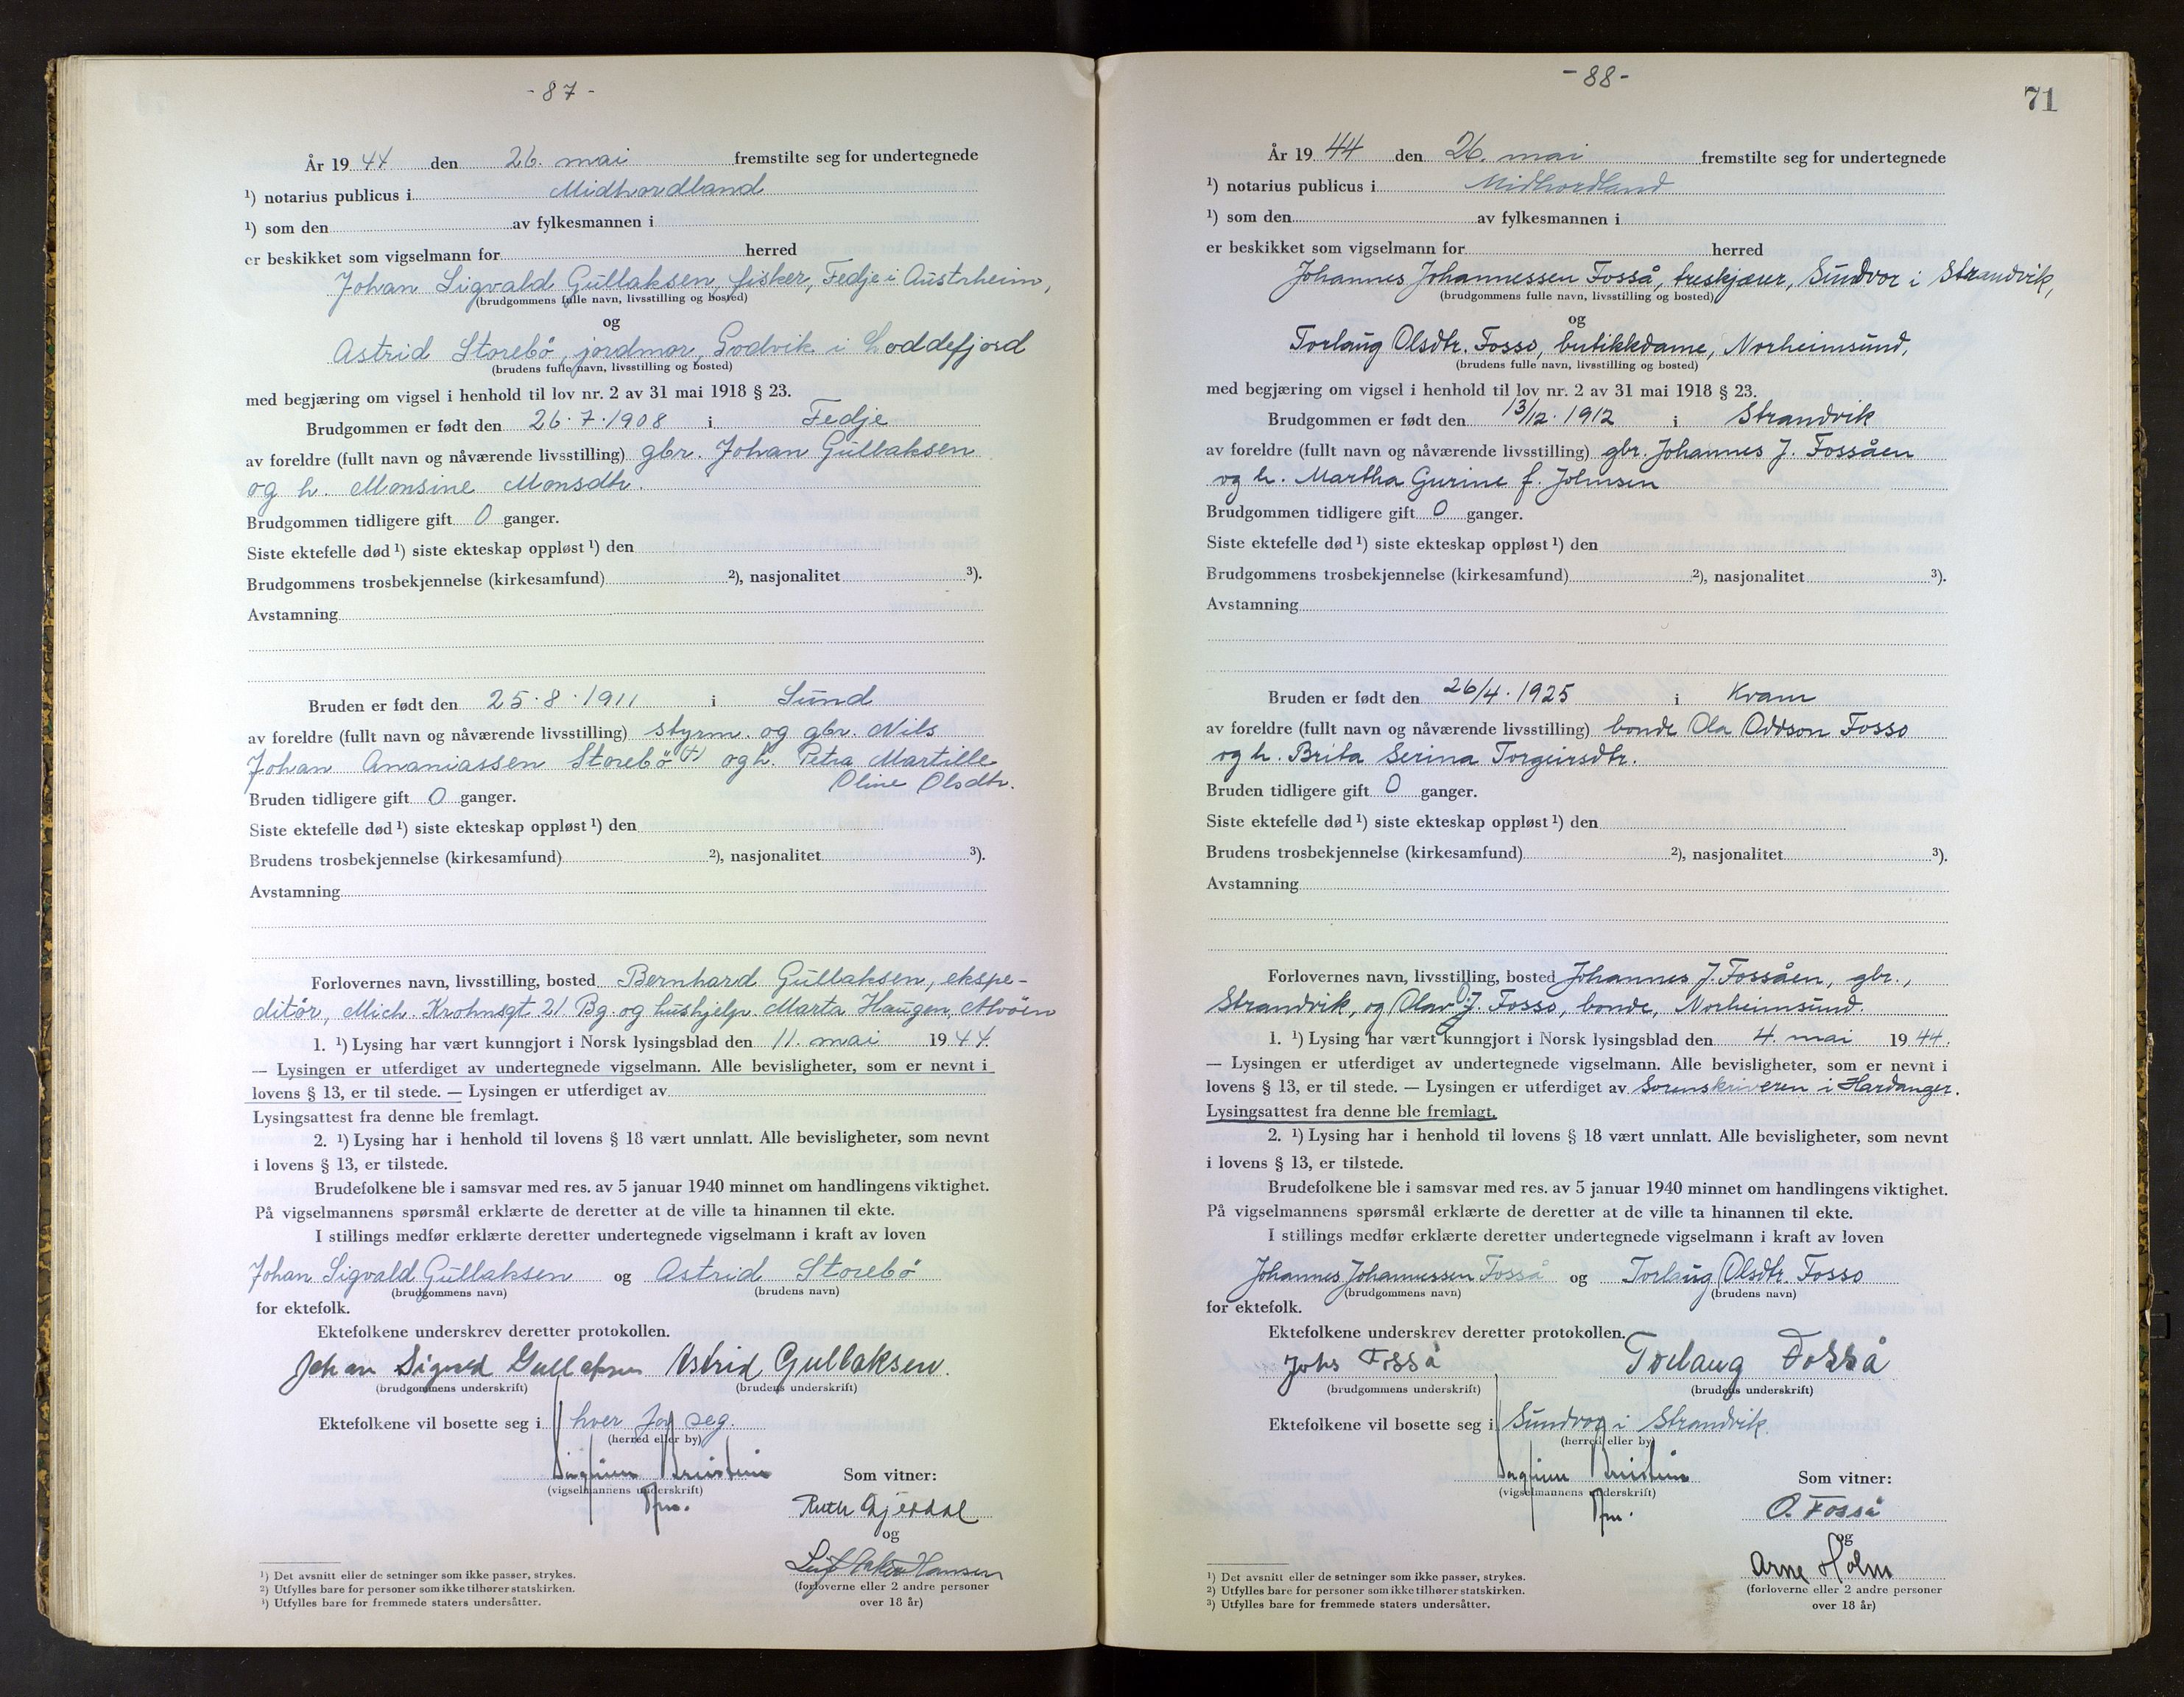 - 87 -
År 19 44 den 26. mai fremstilte seg for undertegnede
¹) notarius publicus i Midhordland
¹) som den av fylkesmannen i
er beskikket som vigselmann for herred
Johan Sigvald Gullaksen, fisker, Fedje i Austrheim,
(brudgommens fulle navn, livsstilling og bosted)
og
Astrid Storebö, jordmor, Godvik i Loddefjord
(brudens fulle navn, livsstilling og bosted)
med begjæring om vigsel i henhold til lov nr. 2 av 31 mai 1918 § 23.
Brudgommen er født den 26.7.1908 i Fedje
av foreldre (fullt navn og nåværende livsstilling) gbr. Johan Gullaksen
og h. Monsine Monsdtr.
Brudgommen tidligere gift 0 ganger.
Siste ektefelle død ¹) siste ekteskap oppløst ¹) den
Brudgommens trosbekjennelse (kirkesamfund) ²), nasjonalitet ³).
Avstamning
Bruden er født den 25.8.1911 i Sund
av foreldre (fullt navn og nåværende livsstilling) styrm. og gbr. Nils
Johan Ananiassen Storebö (+) og h. Petra Martille
Oline Olsdtr.
Bruden tidligere gift 0 ganger.
Siste ektefelle død ¹) siste ekteskap oppløst ¹) den
Brudens trosbekjennelse (kirkesamfund) ²), nasjonalitet ³).
Avstamning
Forlovernes navn, livsstilling, bosted Bernhard Gullaksen, ekspe-
ditör, Mich. Krohnsgt 21 Bg. og hushjelp Marta Haugen, Alvöen
1. ¹) Lysing har vært kunngjort i Norsk lysingsblad den 11. mai 19 44.
— Lysingen er utferdiget av undertegnede vigselmann. Alle bevisligheter, som er nevnt i
lovens § 13, er til stede. — Lysingen er utferdiget av
Lysingsattest fra denne ble fremlagt.
2. ¹) Lysing har i henhold til lovens § 18 vært unnlatt. Alle bevisligheter, som nevnt
i lovens § 13, er tilstede.
Brudefolkene ble i samsvar med res. av 5 januar 1940 minnet om handlingens viktighet.
På vigselmannens spørsmål erklærte de deretter at de ville ta hinannen til ekte.
I stillings medfør erklærte deretter undertegnede vigselmann i kraft av loven
Johan Sigvald Gullaksen og Astrid Storebö
(brudgommens navn) (brudens navn)
for ektefolk.
Ektefolkene underskrev deretter protokollen.
Johan Sigvald Gullaksen Astrid Gullaksen.
(brudgommens underskrift) (brudens underskrift)
Ektefolkene vil bosette seg i hver for seg.
(herred eller by)
Som vitner:
(vigselmannens underskrift)
Ruth Gjerdal
og
Leif Hansen
(forloverne eller 2 andre personer
over 18 år)
¹) Det avsnitt eller de setninger som ikke passer, strykes.
²) Utfylles bare for personer som ikke tilhører statskirken.
³) Utfylles bare for fremmede staters undersåtter.
- 88 -
71
År 19 44 den 26. mai fremstilte seg for undertegnede
¹) notarius publicus i Midhordland
¹) som den av fylkesmannen i
er beskikket som vigselmann for herred
Johannes Johannessen Fosså, treskjærer, Sundvor i Strandvik,
(brudgommens fulle navn, livsstilling og bosted)
og
Torlaug Olsdtr. Fosso, butikkdame, Norheimsund,
(brudens fulle navn, livsstilling og bosted)
med begjæring om vigsel i henhold til lov nr. 2 av 31 mai 1918 § 23.
Brudgommen er født den 13/12. 1912 i Strandvik
av foreldre (fullt navn og nåværende livsstilling) gbr. Johannes J. Fossåen
og h. Martha Gurine f. Johnsen
Brudgommen tidligere gift 0 ganger.
Siste ektefelle død ¹) siste ekteskap oppløst ¹) den
Brudgommens trosbekjennelse (kirkesamfund) ²), nasjonalitet ³).
Avstamning
Bruden er født den 26/4. 1925 i Kvam
av foreldre (fullt navn og nåværende livsstilling) bonde Ola Oddson Fosso
og h. Brita Serina Torgeirsdtr.
Bruden tidligere gift 0 ganger.
Siste ektefelle død ¹) siste ekteskap oppløst ¹) den
Brudens trosbekjennelse (kirkesamfund) ²), nasjonalitet ³).
Avstamning
Forlovernes navn, livsstilling, bosted Johannes J. Fossåen, gbr.,
Strandvik, og Olav J. Fosso, bonde, Norheimsund.
1. ¹) Lysing har vært kunngjort i Norsk lysingsblad den 4. mai 19 44.
— Lysingen er utferdiget av undertegnede vigselmann. Alle bevisligheter, som er nevnt i
lovens § 13, er til stede. — Lysingen er utferdiget av Sorenskriveren i Hardanger.
Lysingsattest fra denne ble fremlagt.
2. ¹) Lysing har i henhold til lovens § 18 vært unnlatt. Alle bevisligheter, som nevnt
i lovens § 13, er tilstede.
Brudefolkene ble i samsvar med res. av 5 januar 1940 minnet om handlingens viktighet.
På vigselmannens spørsmål erklærte de deretter at de ville ta hinannen til ekte.
I stillings medfør erklærte deretter undertegnede vigselmann i kraft av loven
Johannes Johannessen Fosså og Torlaug Olsdtr. Fosso
(brudgommens navn) (brudens navn)
for ektefolk.
Ektefolkene underskrev deretter protokollen.
Johs Fosså Torlaug Fosså
(brudgommens underskrift) (brudens underskrift)
Ektefolkene vil bosette seg i Sundvor i Strandvik.
(herred eller by)
Som vitner:
(vigselmannens underskrift)
O. Fosså
og
Arne Holm
(forloverne eller 2 andre personer
over 18 år)
¹) Det avsnitt eller de setninger som ikke passer, strykes.
²) Utfylles bare for personer som ikke tilhører statskirken.
³) Utfylles bare for fremmede staters undersåtter.